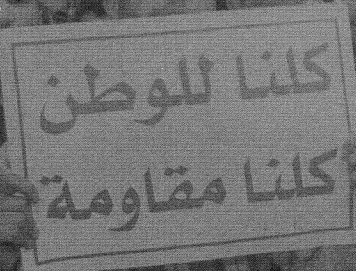 كلنا للوطن
كلنا مقاومة